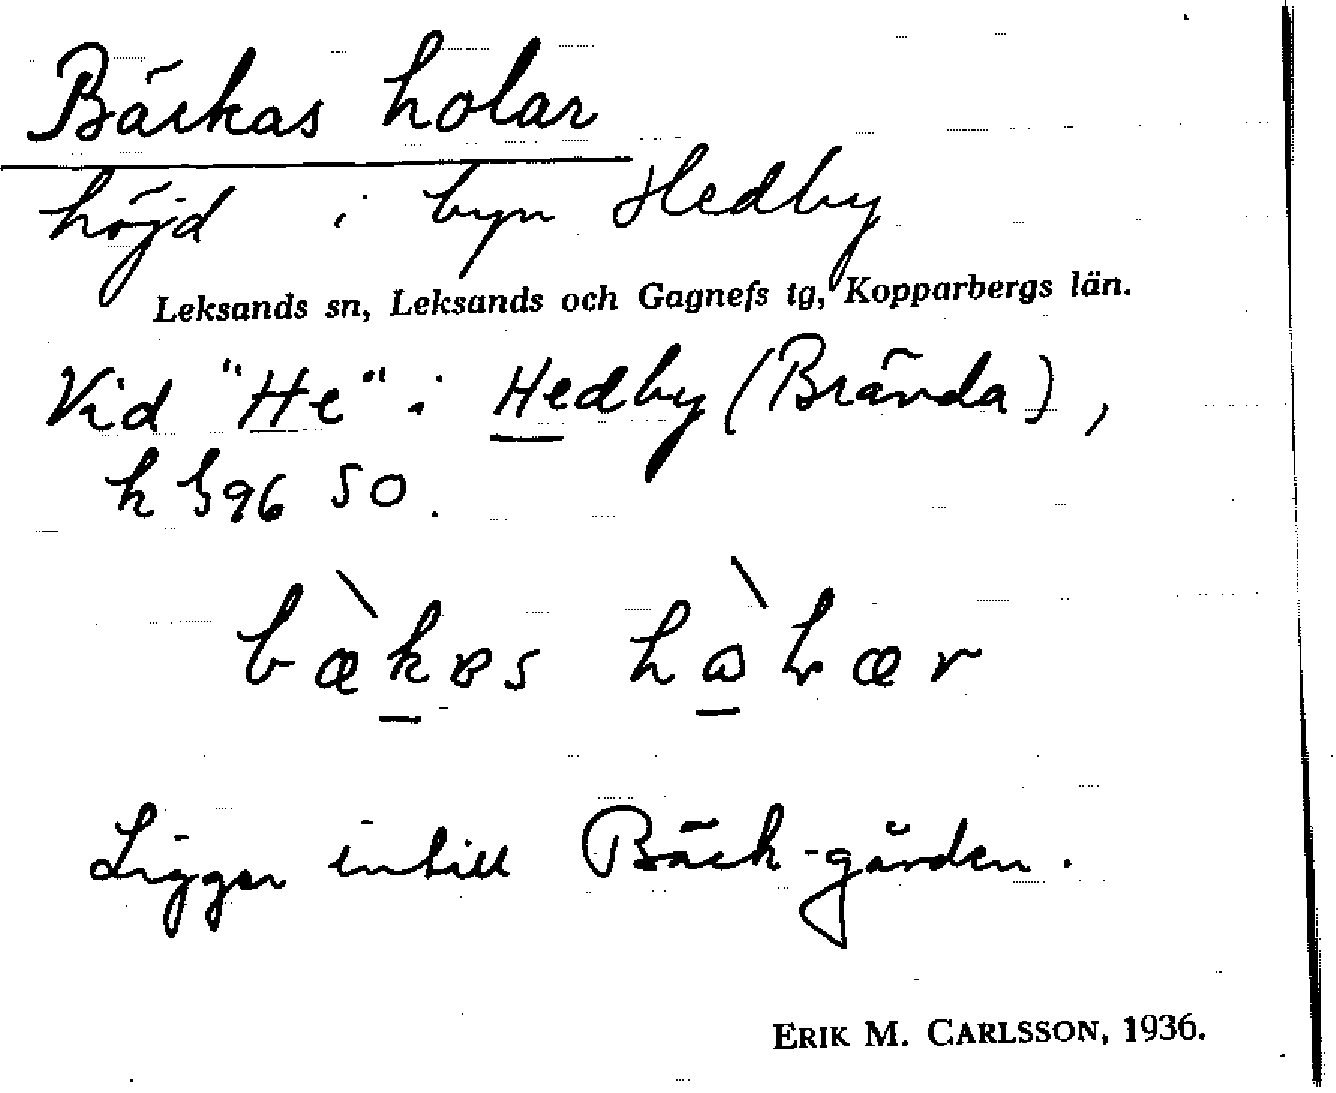 Bäckas holar
höjd i byn Hedby
Leksands sn, Leksands och Gagnefs tg, Kopparbergs län.
Vid "He" i Hedby (Brända),
50.
Ligger intill Bäck-gården.
ERIK M. CARLSSON, 1936.